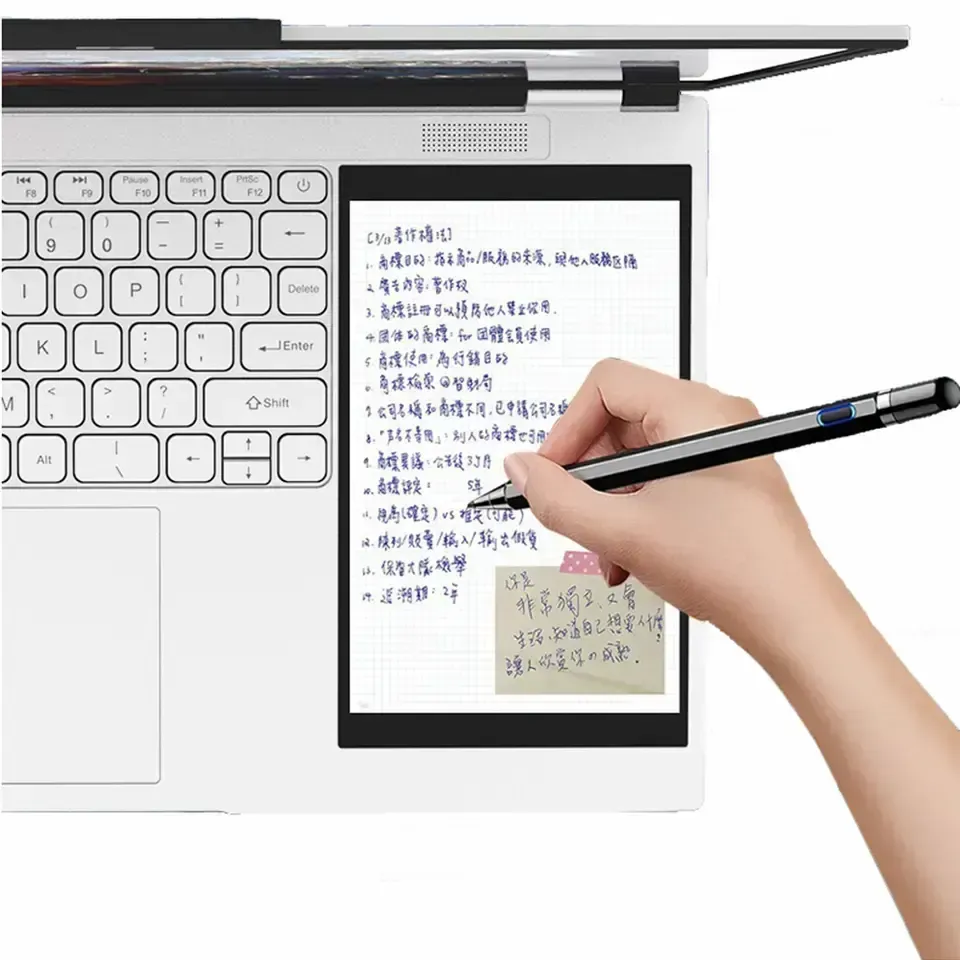 Pause Insert PrtSc
F8 F9 F10 F11 F12
( ) — +
9 0 - =
I O P { } Delete
[ ]
K L : " Enter
; '
M < > ? Shift
, . /
Alt | ← ↑ →
\ ↓
[3/13 著作權法]
1. 商標目的：指示商品/服務的來源，與他人服務區隔
2. 廣告內容：著作权
3. 商標註冊可以預防他人禁止使用.
4. 团体的商標：for 团體会員使用
5. 商標使用：為行銷目的
6. 商標檢索@智財局
7. 公司名稱和商標不同，已申請公司名稱
8.「声名不専用」：別人的商標也可用
9. 商標異議：公告後3ケ月
10. 商標評定： 5年
11. (確定) vs 推定(可能)
12. 陳列/販賣/輸入/輸出仿貨
13. 保智大隊
14. 追溯期：2年
你是
非常獨立、又會
生活、知道自己想要什麼
讓人欣賞你の成熟.